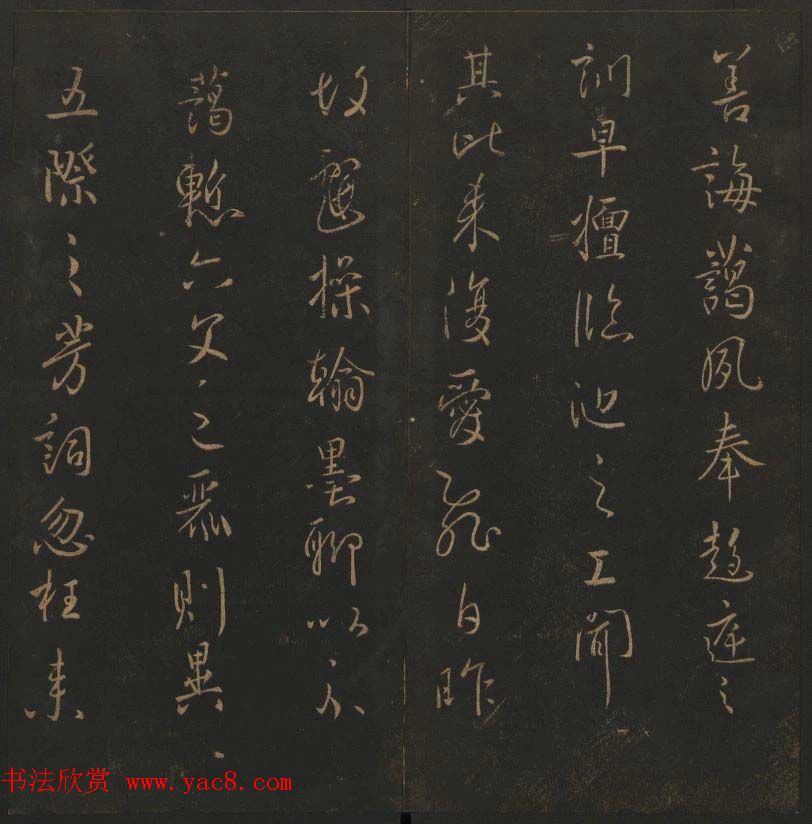 善誨藹夙奉趨庭之
訓早擅臨池之工聞
其比来復愛飛白昨
故戲操翰墨聊以示
藹慙六文之麗則異
五際之芳詞忽枉来
书法欣赏 www.yac8.com